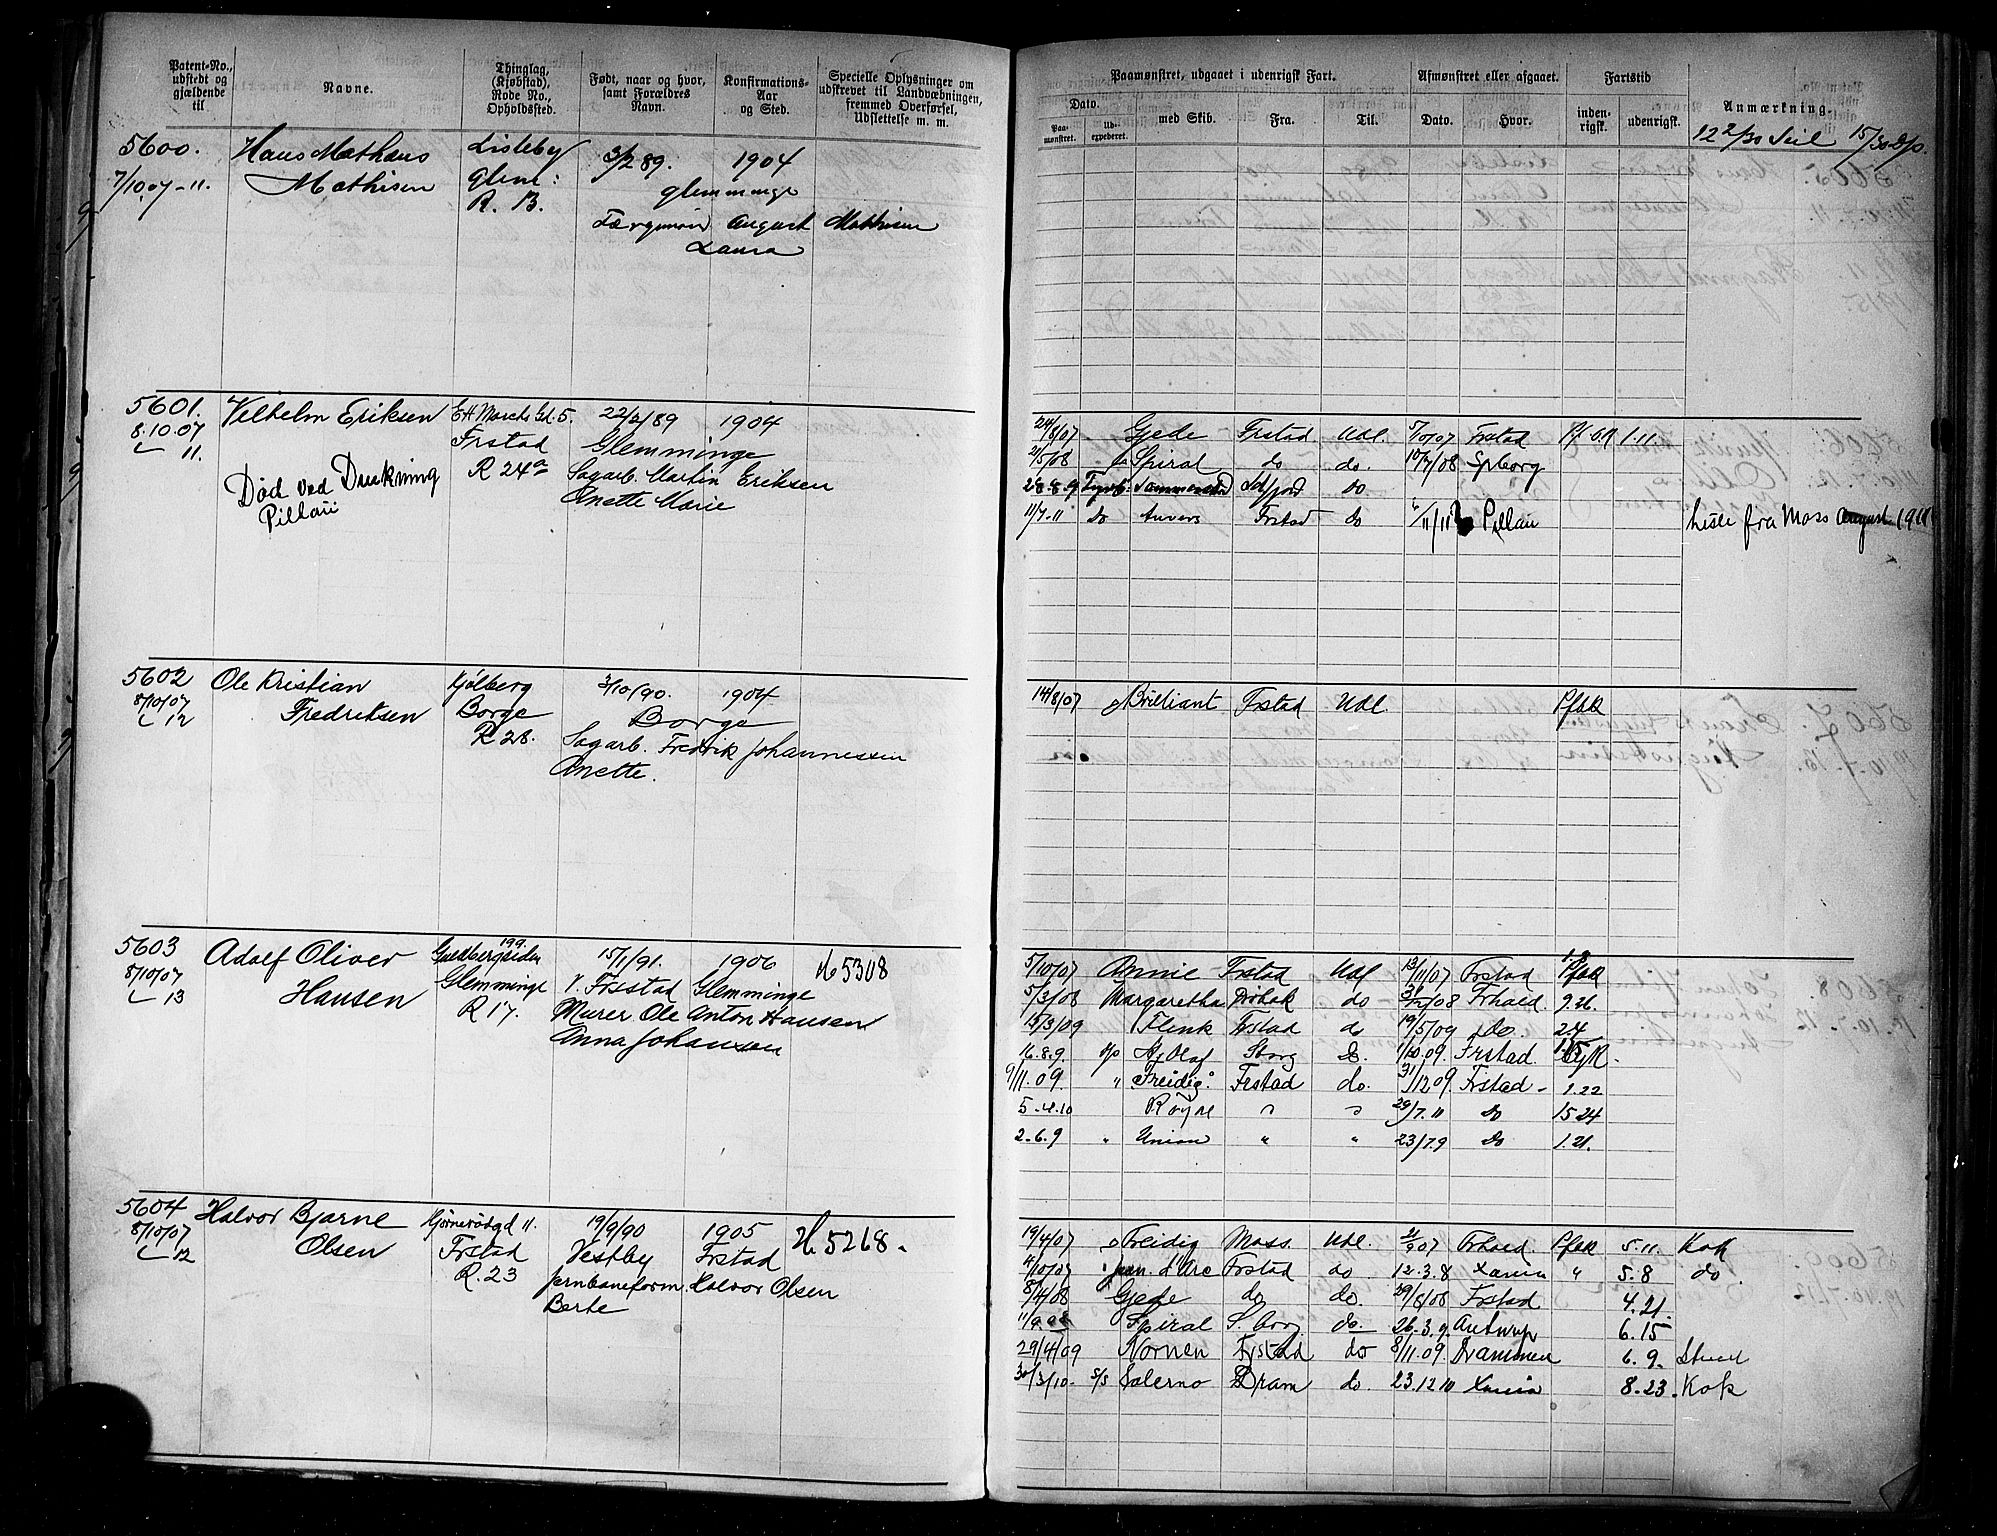 Patent-No., udstedt og gjældende til
Navne.
Thinglag, (Kjøbstad), Rode No., Opholdssted.
Født, naar og hvor, samt Forældres Navn.
Konfirmations-Aar og Sted.
Specielle Oplysninger om udskrevet til Landvæbningen, fremmed Overførsel, Udslettelse m. m.
Paamønstret, udgaaet i udenrigsk Fart.
Afmønstret eller afgaaet.
Fartstid
Anmærkning.
Dato.
Paa-mønstret.
Ud-expederet.
med Skib.
Fra.
Til.
Dato.
Hvor.
inden-rigsk.
udenrigsk.
5600. Hans Mathæus Lisleby 3/2 89. 1904
7/10.07-11. Mathisen Glem: Glemminge
R. B.
August Mathisen
Laura
5601. Vilhelm Eriksen 22/2/89 1904
8.10.07 Frstad Glemminge
11. R 24a Sagarb. Martin Eriksen
Død ved Drukning Anette Marie
Pillau
24/8/07 Gjede Frstad Udl. 5/10/07 Frstad
Spiral do do. 10/7/08 Spborg
28.8.9 do
11/7-11 Do Anvers Frstad do 6/11/11 Pillau
fra Moss August 1911
5602 Ole Kristian Kjølberg 3/10/90. 1904
8/10/07 Fredriksen Borge Borge
12 R 28. Sagarb. Fredrik Johannessen
Anette.
14/8/07 Brilliant Frstad Udl. Pfbk
5603 Adolf Oliver 199. 15/1/91. 1906 No 5308
8/10/07 Hansen Glemminge V. Frstad Glemminge
13 R 17. Murer Ole Anton Hansen
Anna Johansen
5/10/07 Annie Frstad Udl 13/11/07 Frstad Pfbk
5/3/08 Margaretha Drøbak do Frhald 9.26.
15/3/09 Flink Frstad do 19/5/09 do. 2.4
16.8.9. Kg Olaf Sborg Do. 1/10.09. Frstad.
9/11.09 " Freidig. Frstad do. 31/12 09. Frstad - 1.22
5.-4.10 Røyne 29/7.11 Do 15 24
2.6.9 " Union " " 23/7.9 Do 1.21.
5604 Halvor Bjarne 19/9/90 1905 5268.
8/10/07 Olsen Frstad Vestby Frstad
12 R. 23 Jernbaneform. Halvor Olsen
Berte
19/4/07 Freidig Moss. Udl. Frhald. Pfbk 5.11. Kok
4/10/07 Jean. d'Arc Frstad do 12.3.8 Xania " 5.8 do.
8/4/08 Gjede do do. 29/8/08 Frstad 4.21.
Spiral S.borg do. 26.3.9. Antwerp 6.15
29/4/09 Nornen Frstad do 8/11.09. Drammen 6.9.
30/3/10. S/S Salerno Dram do. 23.12 10 Xania 8.23. Kok